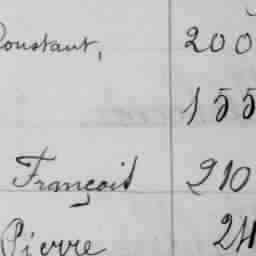 Constant, 200
155
François 210
Pierre 24